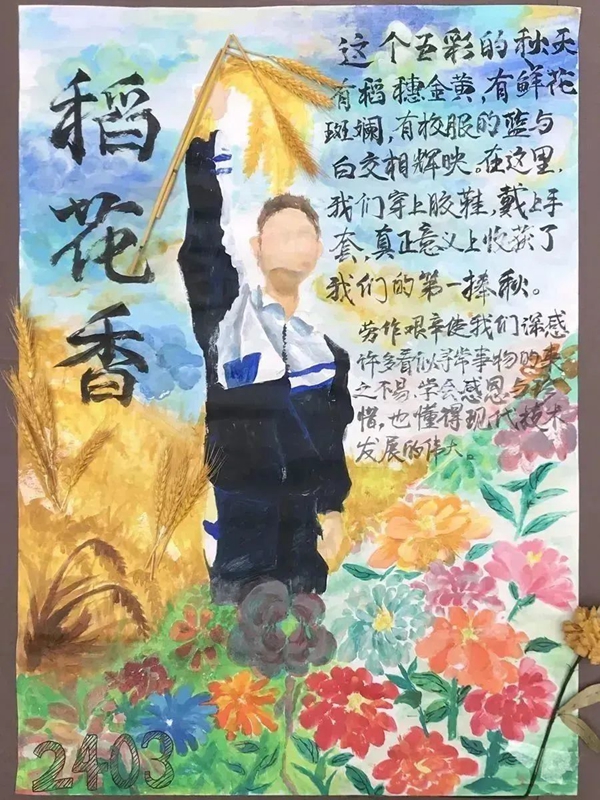 稻花香
这个五彩的秋天
有稻穗金黄,有鲜花
斑斓,有校服的蓝与
白交相辉映。在这里,
我们穿上胶鞋,戴上手
套,真正意义上收获了
我们的第一捧秋。
劳作艰辛使我们深感
许多看似寻常事物的来
之不易,学会感恩与珍
惜,也懂得现代技术
发展的伟大。
2403